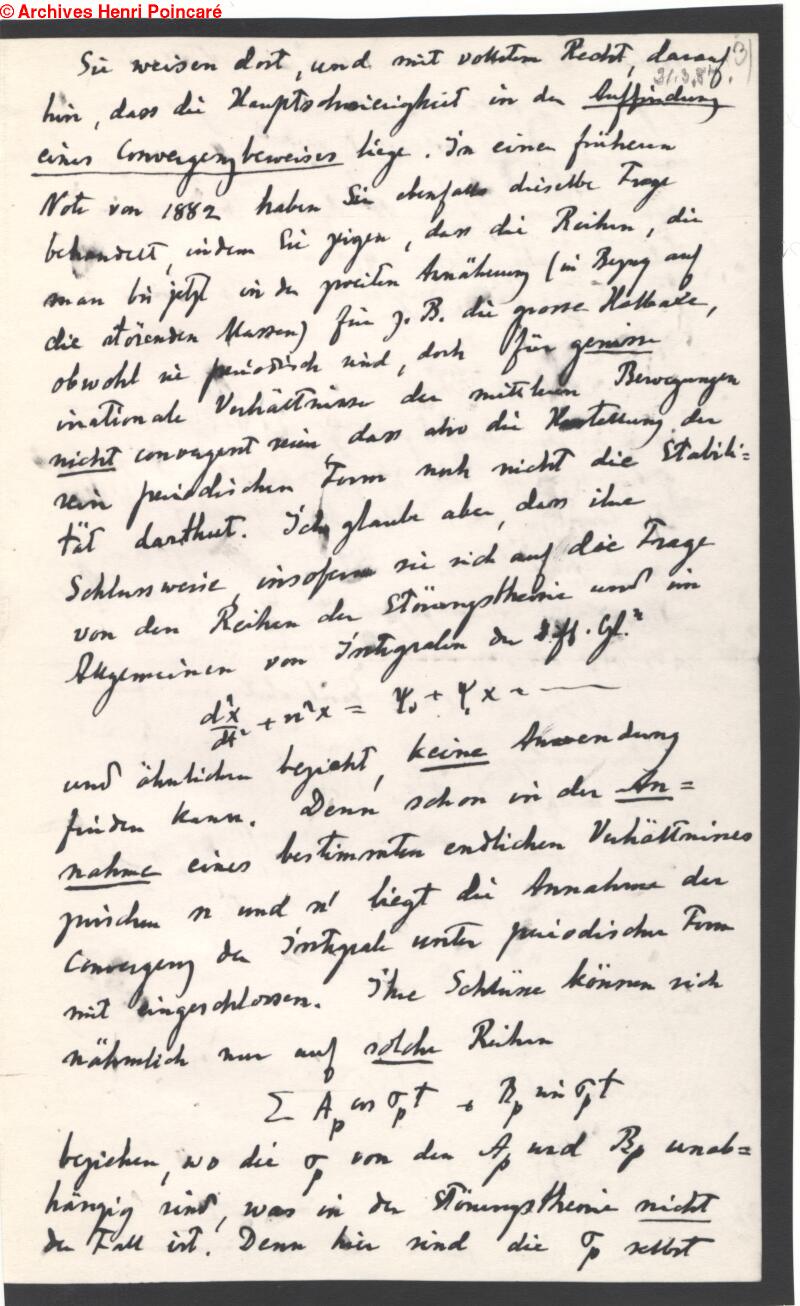 © Archives Henri Poincaré
3)
31.3.8
Sie weisen dort, und mit vollstem Recht, darauf
hin, dass die Hauptschwierigkeit in der Auffindung
eines Convergenzbeweises liege. In einer früheren
Note von 1882 haben Sie ebenfalls dieselbe Frage
behandelt, indem Sie zeigen, dass die Reihen, die
man bis jetzt in der zweiten Annäherung (in Bezug auf
die störenden Massen) für z. B. die grosse Halbaxe,
obwohl sie periodisch sind, doch für gewisse
irrationale Verhältnisse der mittleren Bewegungen
nicht convergent seien, dass also die Herstellung der
rein periodischen Form noch nicht die Stabili=
tät darthut. Ich glaube aber, dass ihre
Schlussweise, insofern sie sich auf die Frage
von den Reihen der Störungstheorie und im
Allgemeinen von Integralen der Diff. Gl.ⁿ
d²x/dt² + n²x = Ψ₀ + Ψ₁x + ——
und ähnlichen bezieht, keine Anwendung
finden kann. Denn schon in der An=
nahme eines bestimmten endlichen Verhältnisses
zwischen n und n' liegt die Annahme der
Convergenz der Integrale unter periodischer Form
mit eingeschlossen. Ihre Schlüsse können sich
nähmlich nur auf solche Reihen
Σ A_p cos σ_p t + B_p sin σ_p t
beziehen, wo die σ_p von den A_p und B_p unab=
hängig sind, was in der Störungstheorie nicht
der Fall ist. Denn hier sind die σ_p selbst